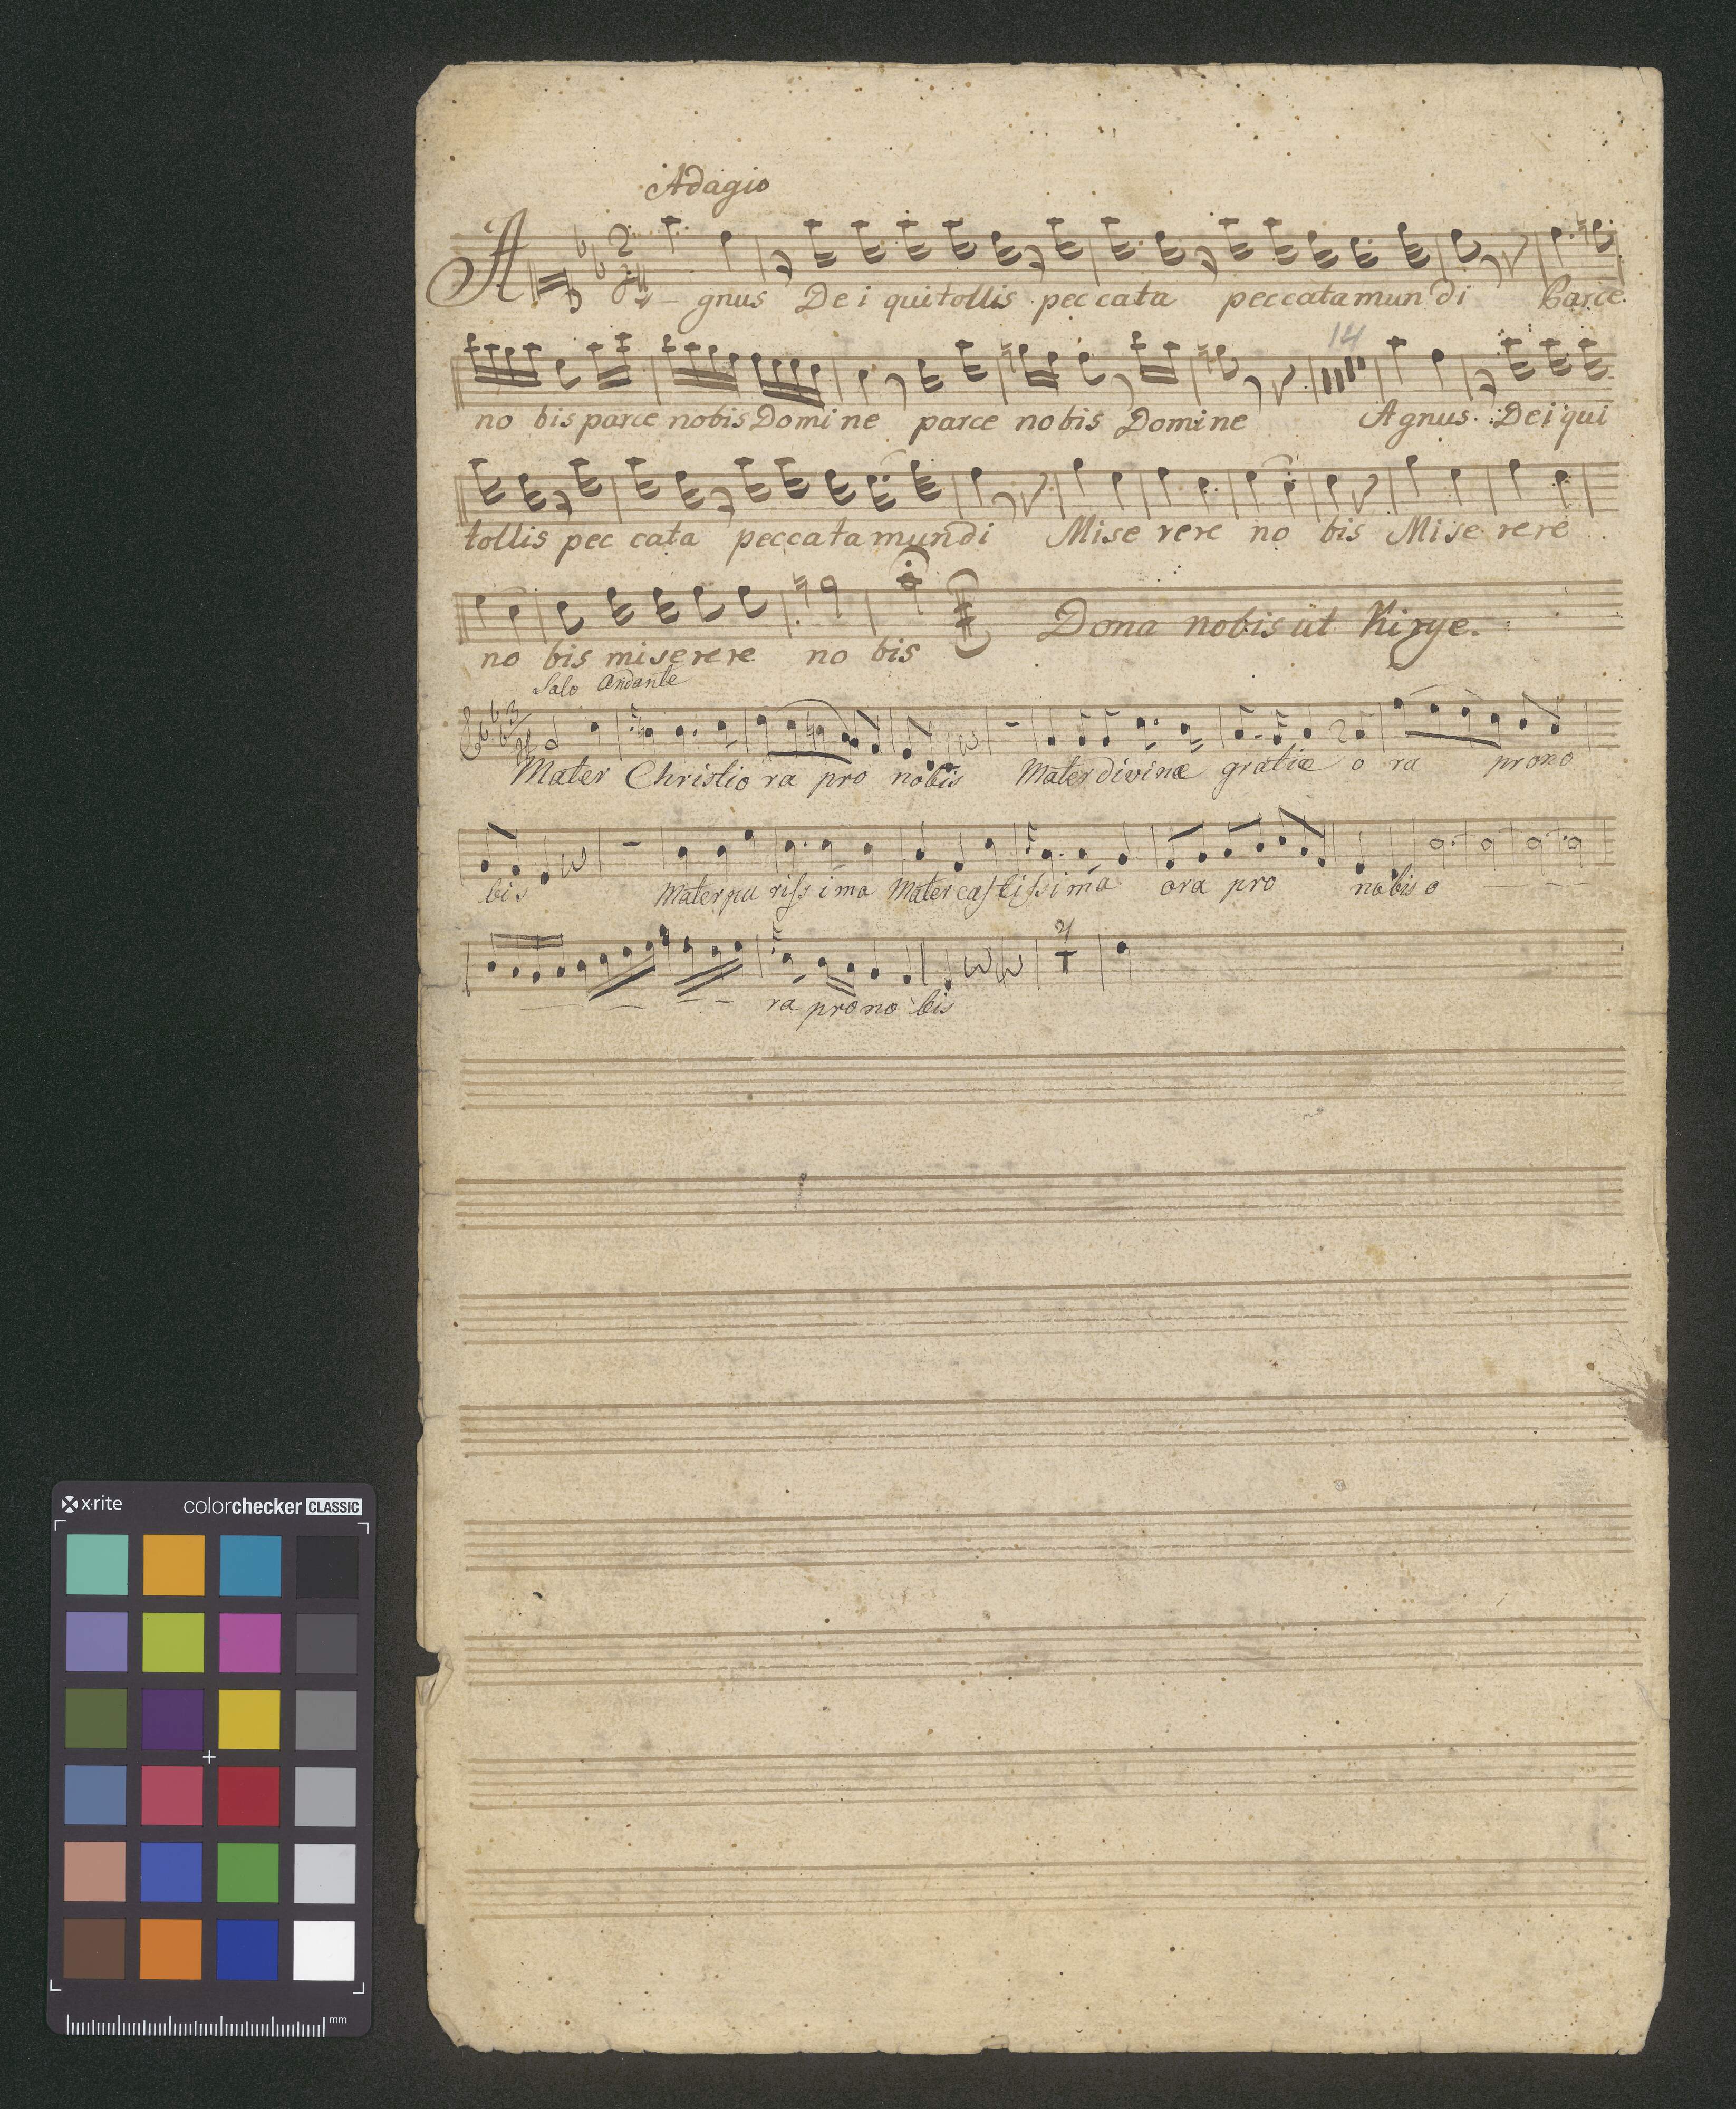 Adagio
A - gnus Dei qui tollis peccata peccata mundi Parce
no bis parce nobis Domine parce nobis Domine Agnus Dei qui
14
tollis peccata peccata mundi Miserere no bis Miserere
no bis miserere no bis Dona nobis ut Kirye.
Salo Andante
Mater Christi o ra pro nobis Mater divinæ gratiæ o ra pro no
bis Mater purissima Mater castissima ora pro nobis o
ra pro no bis
x·rite colorchecker CLASSIC
mm